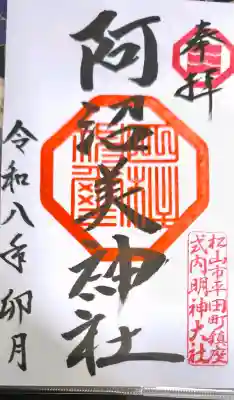 奉拝
阿沼美神社
松山市平田町鎮座
式内明神大社
令和八年卯月